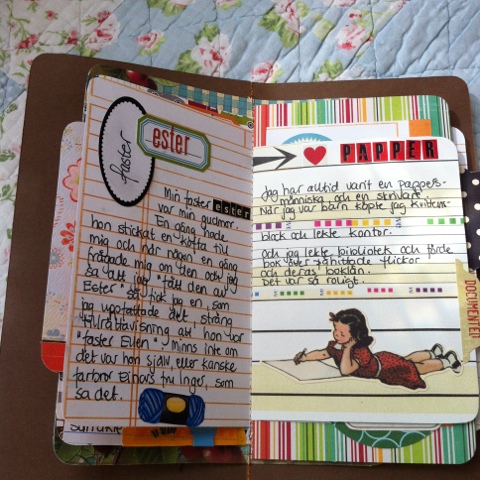 faster
ester
Min faster ester
var min gudmor.
En gång hade
hon stickat en kofta till
mig och när någon en gång
frågade mig om den och jag
sa att jag "fått den av
Ester" så fick jag en, som
jag uppfattade det, sträng
tillrättavisning att hon var
"faster Ellen". Minns inte om
det var hon själv, eller kanske
farbror Einars fru Inger, som
sa det.
PAPPER
Jag har alltid varit en pappers-
människa och en skrivare.
När jag var barn köpte jag kvittens-
block och lekte kontor.
och jag lekte bibliotek och förde
bok över såhittade flickor
och deras boklån.
Det var så roligt.
DOCUMENTED